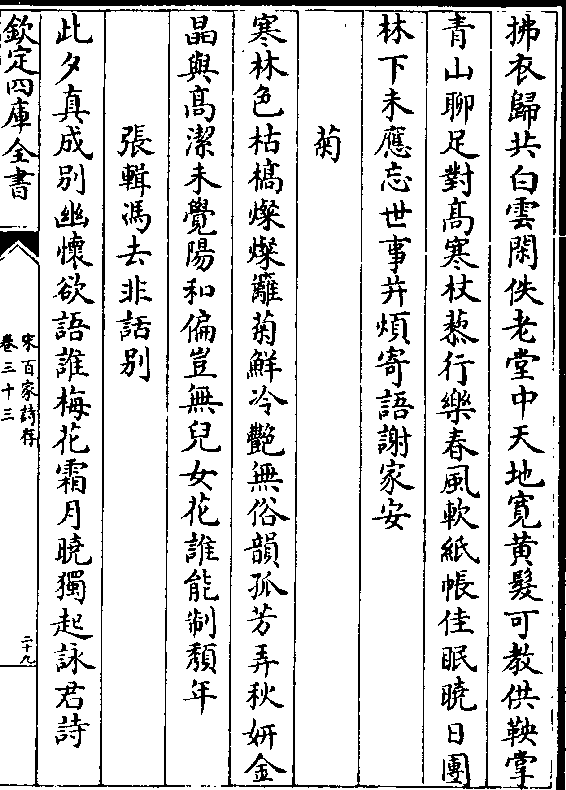 拂衣歸共白雲閑佚老堂中天地寛黃髮可教供鞅掌
青山聊足對髙寒杖藜行樂春風軟紙帳佳眠曉日團
林下未應忘世事并煩寄語謝家安
菊
寒林色枯槁燦燦籬菊鮮冷艷無俗韻孤芳弄秋妍金
晶與髙潔未覺陽和偏豈無兒女花誰能制頽年
張輯馮去非話別
此夕真成別幽懷欲語誰梅花霜月曉獨起詠君詩
欽定四庫全書
宋百家詩存
卷三十三
二十九